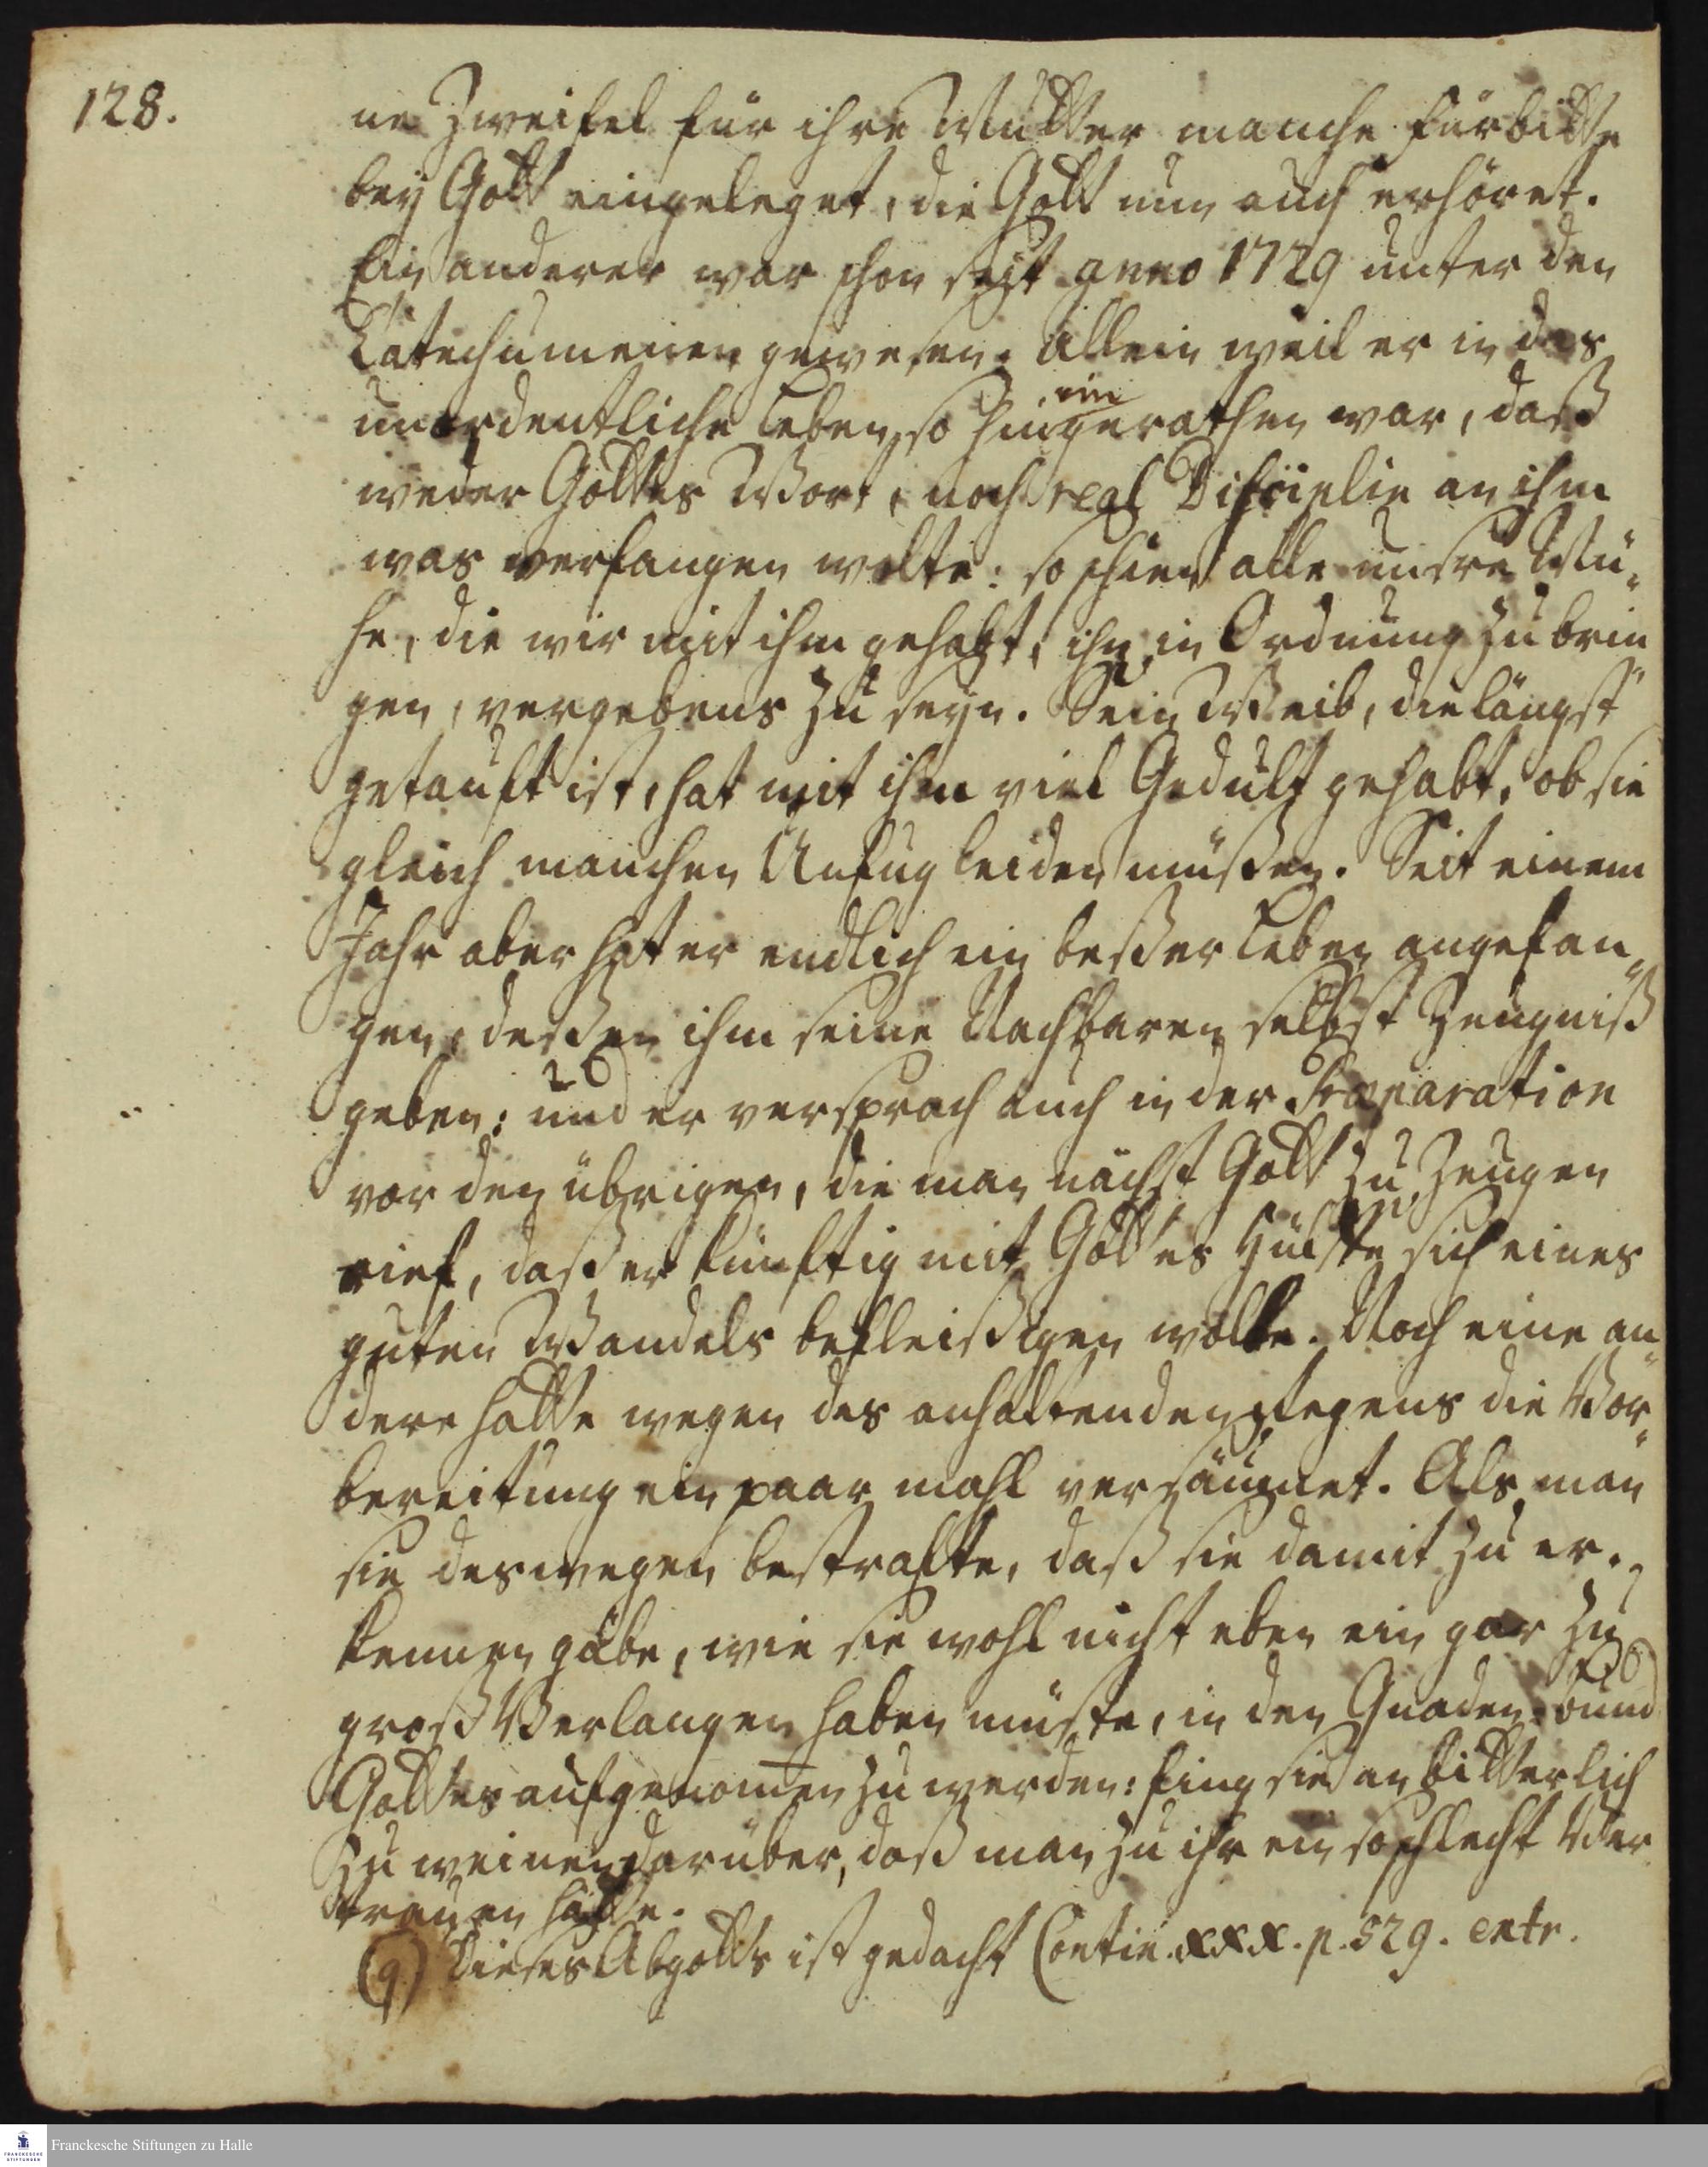 128.
ne Zweifel für ihre Mutter manche Fürbitte
bey Gott eingeleget, die Gott nun auch erhöret.
Ein anderer war schon seit anno 1729 unter den
Catechumenen gewesen. Allein weil er in das
unordentliche Leben so hin ein gerathen war, daß
weder Gottes Wort, noch real Disciplin an ihm
was verfangen wolte: so schien alle unsre Mü-
he, die wir mit ihm gehabt, ihn in Ordnung zu brin
gen, vergebens zu seyn. Sein Weib, die längst
getauft ist, hat mit ihm viel Gedult gehabt, ob sie
gleich manchen Unfug leiden müßen. Seit einem
Jahr aber hat er endlich ein beßer Leben angefan-
gen, deßen ihm seine Nachbaren selbst Zeugniß
geben: und er versprach auch in der Præparation
vor den übrigen, die man nächst Gott zu Zeugen
rief, daß er künftig mit Gottes Hülfe sich eines
guten Wandels befleißigen wolle. Noch eine an-
dere hatte wegen des anhaltenden Regens die Vor-
bereitung ein paar mahl versäumet. Als man
sie deswegen bestrafte, daß sie damit zu er-
kennen gäbe, wie sie wohl nicht eben ein gar zu
groß Verlangen haben müste, in den Gnaden-bund
Gottes aufgenomen zu werden: fing sie an bitterlich
zu weinen darüber, daß man zu ihr ein so schlecht Ver
trauen hätte.
(q) Dieses Abgotts ist gedacht Contin. XXX. p. 529. extr.
Franckesche Stiftungen zu Halle
FRANCKESCHE
STIFTUNGEN